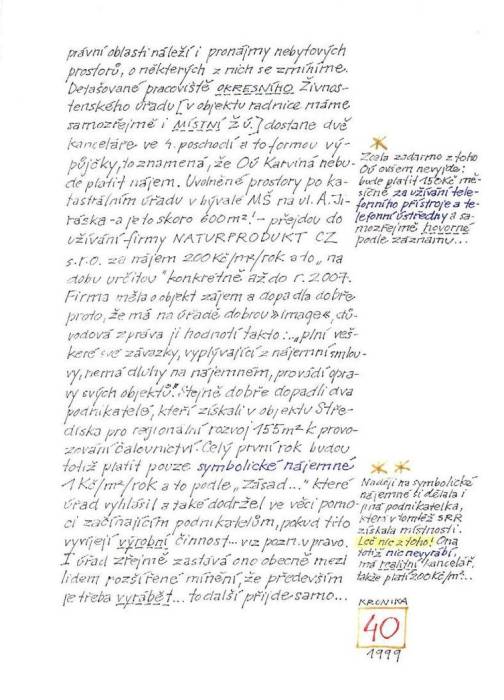 právní oblasti náleží i pronájmy nebytových
prostorů, o některých z nich se zmíníme.
Detašované pracoviště OKRESNÍHO Živnos-
tenského úřadu [v objektu radnice máme
samozřejmě i MÍSTNÍ Ž.Ú.] dostane dvě
kanceláře ve 4. poschodí a to formou vý-
půjčky, to znamená, že OÚ Karviná nebu-
de platit nájem. Uvolněné prostory po ka-
tastrálním úřadu v bývalé MŠ na ul. A. Ji-
ráska - a je to skoro 600 m²! - přejdou do
užívání firmy NATURPRODUKT CZ
s.r.o. za nájem 200 Kč/m²/rok a to „na
dobu určitou" konkrétně až do r. 2007.
Firma měla o objekt zájem a dopadla dobře
proto, že má na úřadě dobrou »image«, dů-
vodová zpráva ji hodnotí takto: „plní veš-
keré své závazky, vyplývající z nájemní smlou-
vy, nemá dluhy na nájemném, provádí opra-
vy svých objektů." Stejně dobře dopadli dva
podnikatelé, kteří získali v objektu Stře-
diska pro regionální rozvoj 155 m² k provo-
zování čalounictví. Celý první rok budou
totiž platit pouze symbolické nájemné
1 Kč/m²/rok a to podle „Zásad..." které
úřad vyhlásil a také dodržel ve věci pomo-
ci začínajícím podnikatelům, pokud tito
vyvíjejí výrobní činnost... viz pozn. vpravo.
I úřad zřejmě zastává ono obecně mezi
lidem rozšířené mínění, že především
je třeba vyrábět... to další přijde samo...
Zcela zadarmo z toho
OÚ ovšem nevyjde:
bude platit 150 Kč mě-
síčně za užívání tele-
fonního přístroje a te-
lefonní ústředny a sa-
mozřejmě hovorné
podle záznamu...
Naději na symbolické
nájemné si dělala i
jiná podnikatelka,
která v tomtéž SRR
získala místnosti.
Leč nic z toho! Ona
totiž nic nevyrábí,
má realitní kancelář,
takže platí 200 Kč/m²...
KRONIKA
40
1999